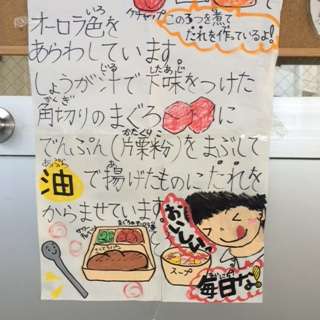 ケチャップ
この3つを煮て
たれを作っているよ!
オーロラ色を
いろ
あらわしています。
しょうが汁で下味をつけた
じる
したあじ
角切りのまぐろ に
かくぎ
でんぷん(片栗粉)をまぶして
かたくりこ
油で揚げたものにたれを
あぶら
あ
からませています。
おいしい。
スープ
毎日な。